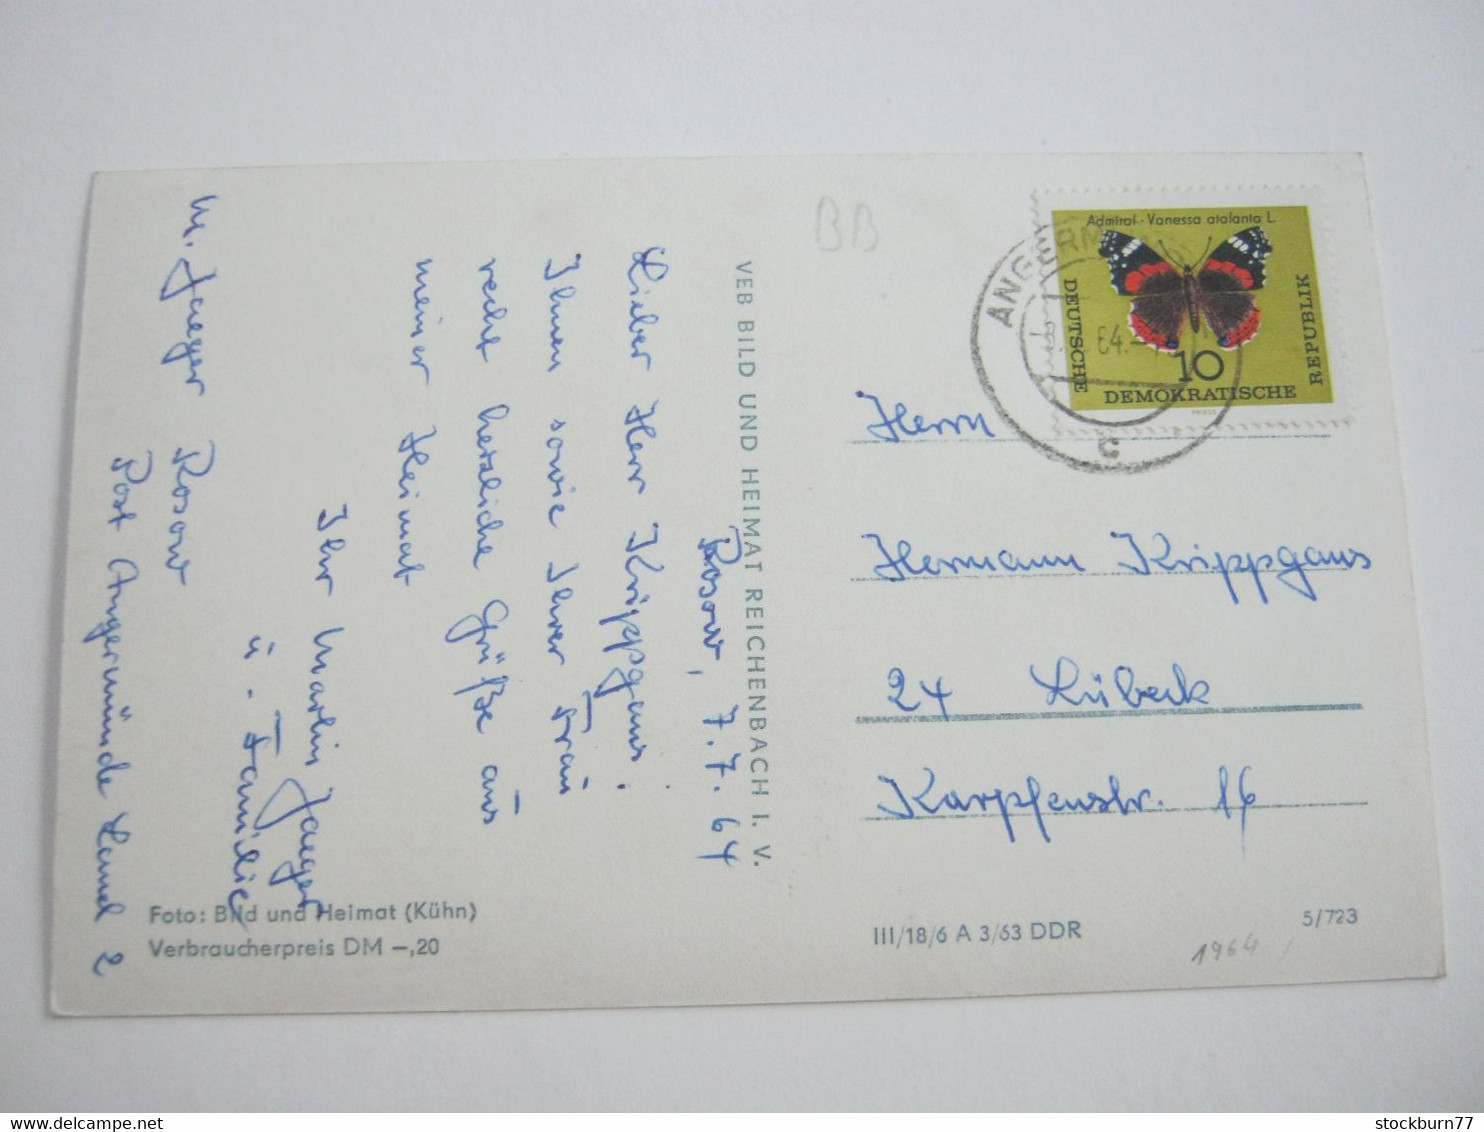 Rosow, 7.7.64
Lieber Herr Krippgans.
Ihnen sowie Ihrer Frau
recht herzliche Grüße aus
meiner Heimat
Ihr Martin Jaeger
u. Familie
M. Jaeger Rosow
Post Angermünde Land 2
Foto: Bild und Heimat (Kühn)
Verbraucherpreis DM —,20
VEB BILD UND HEIMAT REICHENBACH I. V.
BB
Admiral · Vanessa atalanta L.
DEUTSCHE
DEMOKRATISCHE
REPUBLIK
10
c
Herrn
Hermann Krippgans
24 Lübeck
Karpfenstr. 16
III/18/6 A 3/63 DDR
5/723
1964
stockburn77